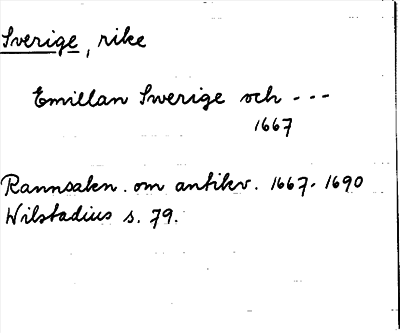 Sverige, rike
Emillan Swerige och ---
1667
Rannsakn. om antikv. 1667-1690
Wilstadius s. 79.